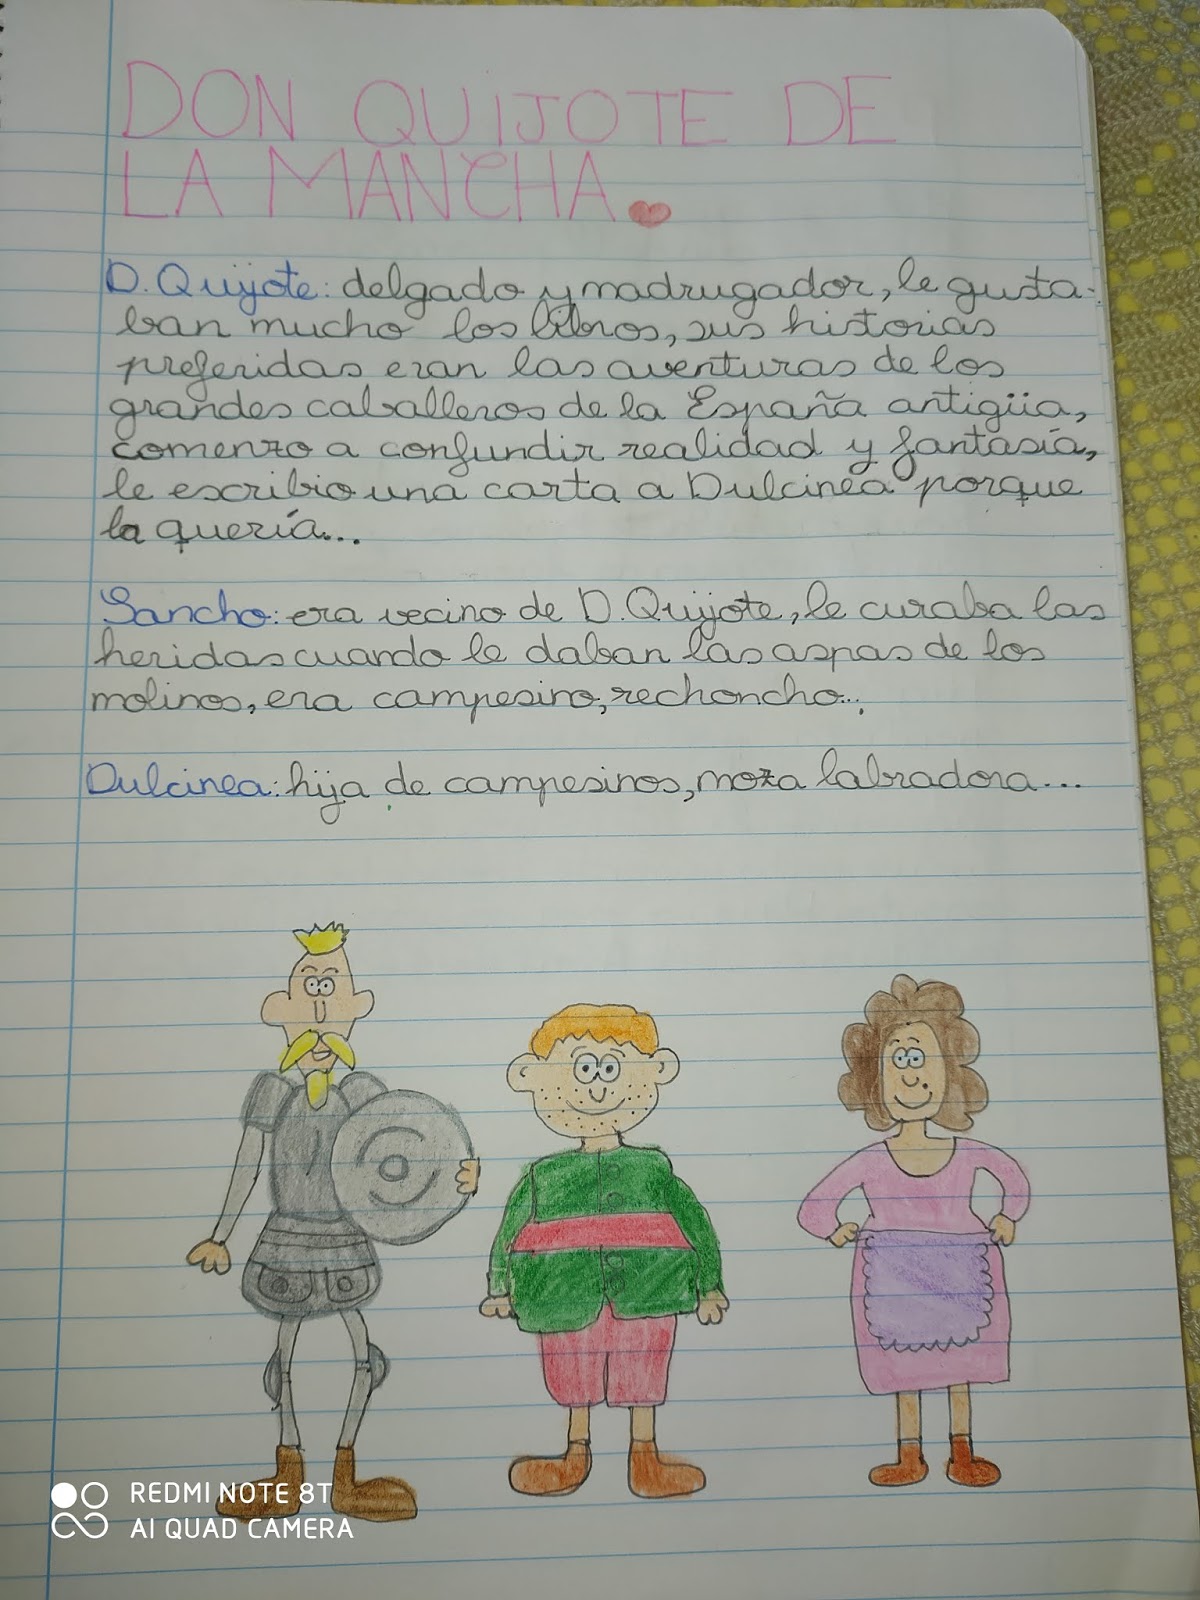 DON QUIJOTE DE
LA MANCHA
D. Quijote: delgado y madrugador, le gusta-
ban mucho los libros, sus historias
preferidas eran las aventuras de los
grandes caballeros de la España antigüa,
comenzo a confundir realidad y fantasía,
le escribio una carta a Dulcinea porque
la quería...
Sancho: era vecino de D. Quijote, le curaba las
heridas cuando le daban las aspas de los
molinos, era campesino, rechoncho...
Dulcinea: hija de campesinos, moza labradora...
REDMI NOTE 8T
AI QUAD CAMERA